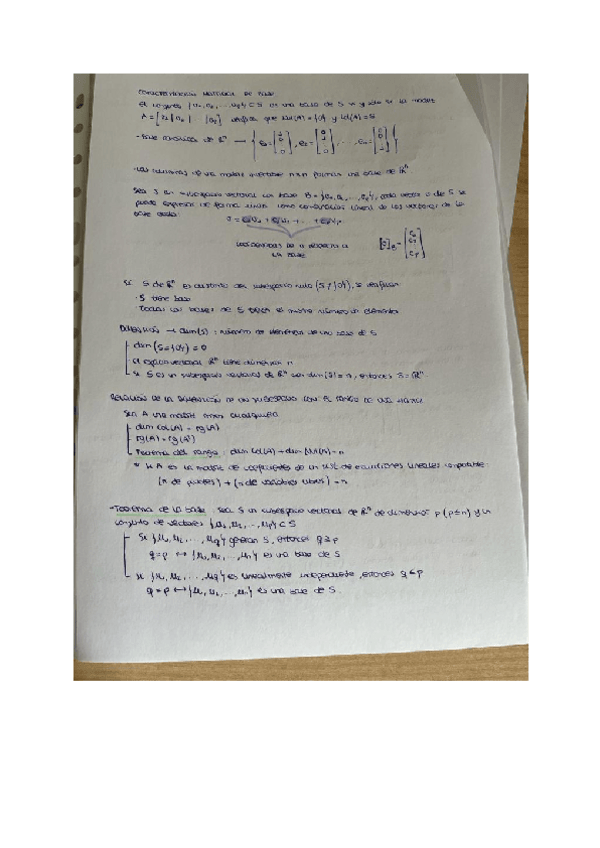 CARACTERIZACIÓN MATRICIAL DE BASE
El conjunto {u₁,u₂,...,u_q} ⊂ S es una base de S si y sólo si la matriz
A = [u₁|u₂| |u_q] verifica que Nul(A) = {0} y Col(A) = S
- Base canónica de Rⁿ — { e₁ = [1 0 0], e₂ = [0 1 0], ..., eₙ = [0 0 1] }
- Las columnas de una matriz invertible nxn forman una base de Rⁿ
Sea S un subespacio vectorial con base B = {, cada vector de S se
puede expresar de forma única como combinación lineal de los vectores de la
base dada:
COORDENADAS DE RESPECTO A
LA BASE
[]_B = [c₁ c₂ c_p]
Si S de Rⁿ es distinto del subespacio nulo (S ≠ {0}), se verifican:
· S tiene base
· Todas las bases de S tienen el mismo número de elementos
DIMENSIÓN → dim(S): número de elementos de una base de S
· dim (S = {0}) = 0
· El espacio vectorial Rⁿ tiene dimensión n
· Si S es un subespacio vectorial de Rⁿ con dim(S) = n, entonces S = Rⁿ.
RELACIÓN DE LA DIMENSIÓN DE UN SUBESPACIO CON EL RANGO DE UNA MATRIZ
Sea A una matriz mxn cualquiera
dim Col(A) = rg(A)
rg(A) = rg(Aᵗ)
Teorema del rango: dim Col(A) + dim Nul(A) = n
Si A es la matriz de coeficientes de un sist de ecuaciones lineales compatible:
(n de pivotes) + (n de variables libres) = n
- Teorema de la base: sea S un subespacio vectorial de Rⁿ de dimensión p (p≤n) y un
conjunto de vectores {u₁, u₂, ..., } ⊂ S
Si {u₁, u₂, ..., u_q} generan S, entonces q ≥ p
q = p ↔ {u₁, u₂, ..., } es una base de S
Si {u₁, u₂, ..., u_q} es linealmente independiente, entonces q ≤ p
q = p ↔ {u₁, u₂, ..., } es una base de S.